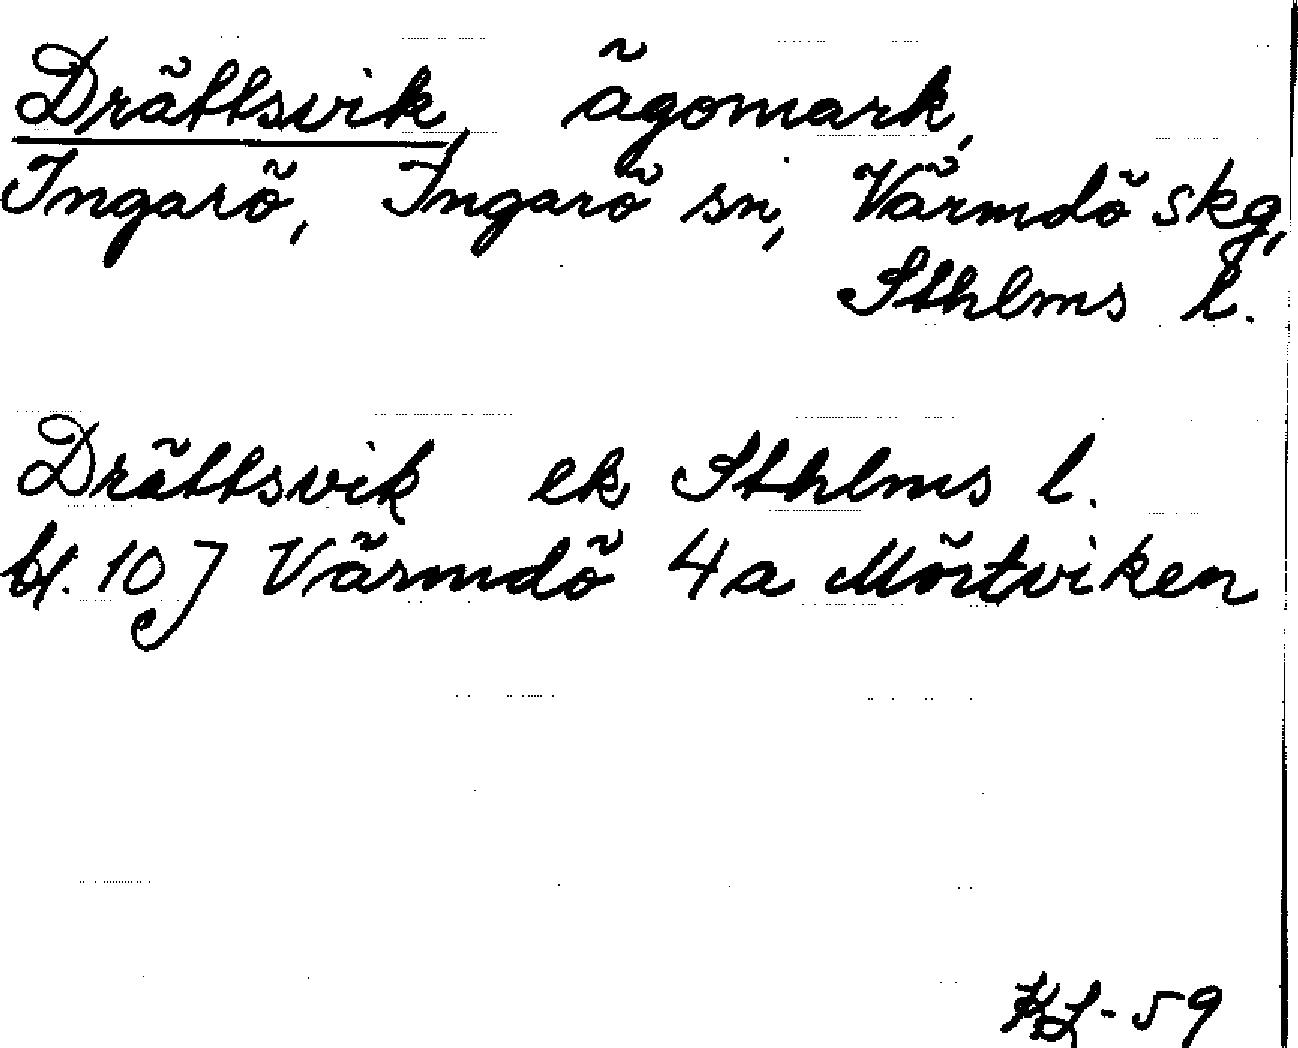 Drättsvik, ägomark,
Ingarö, Ingarö sn, Värmdö skg,
Sthlms l.
Drättsvik ek Sthlms l.
bl. 10 J Värmdö 4a Mörtviken
KL-59